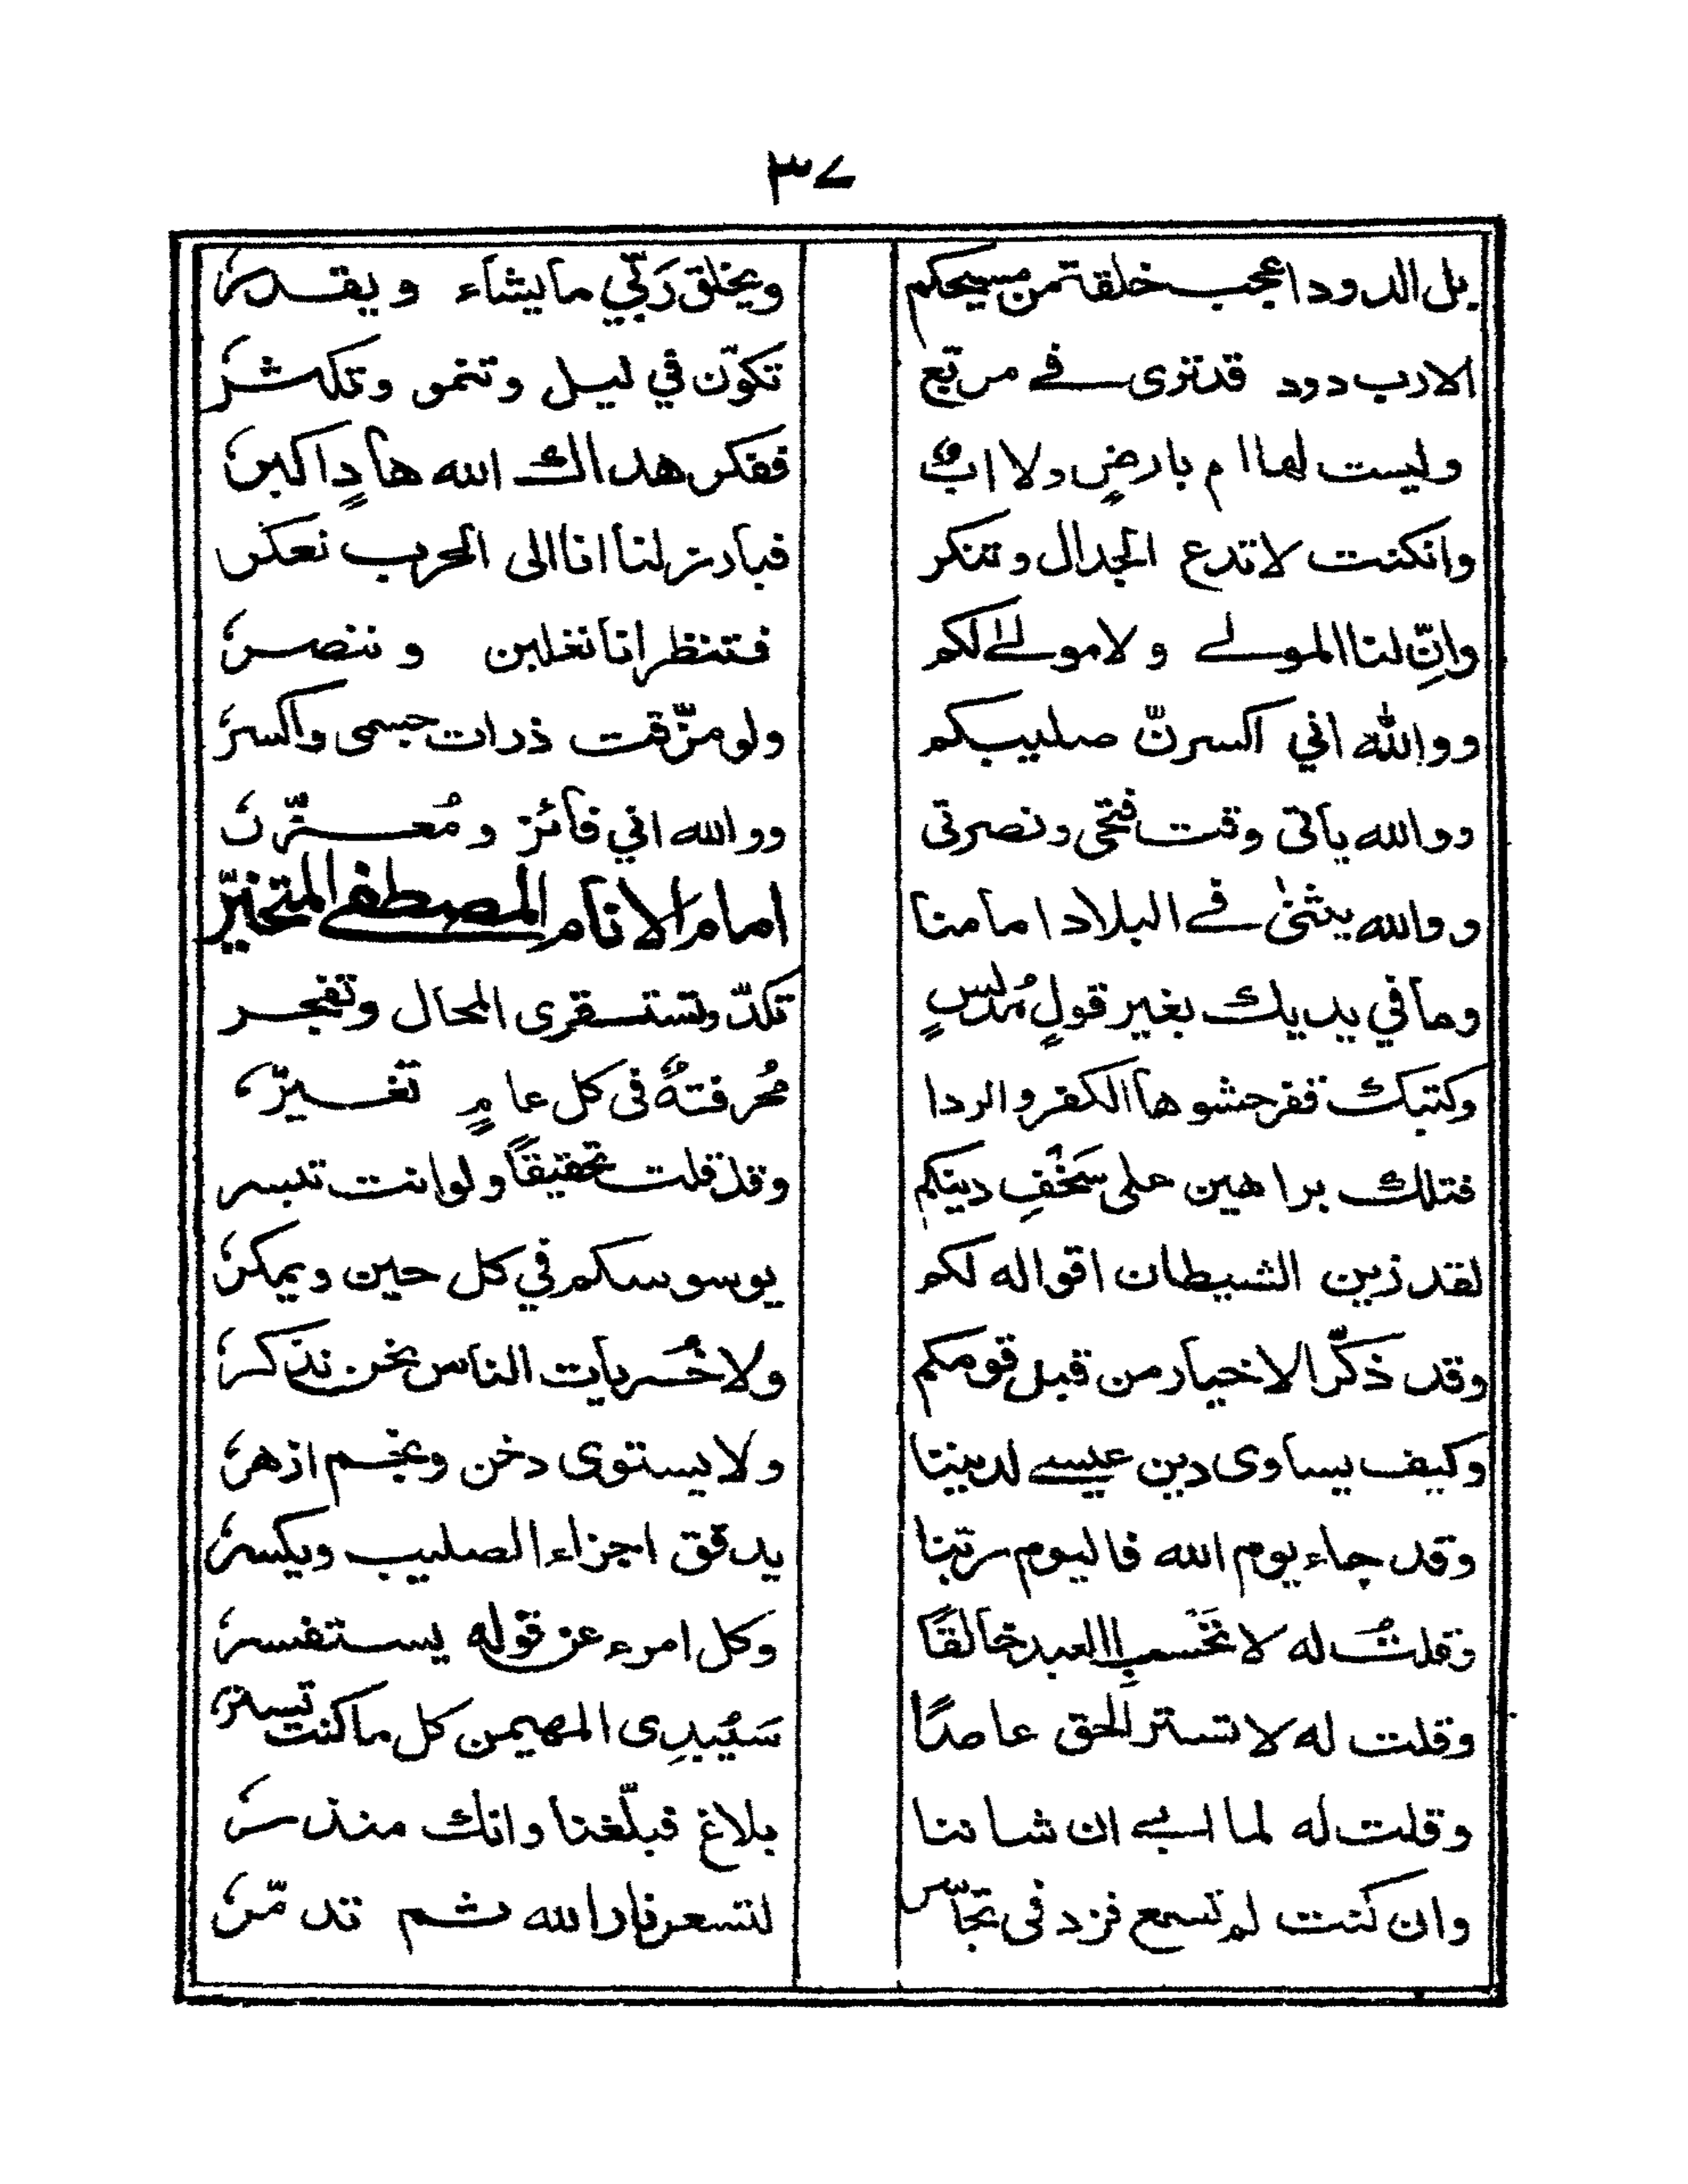 ٣٧
بل الدود اعجب خلقة من مسيحكم ويخلق رَبّي ما يشاء ويقدرُ
الا رب دود قد ترى في مربّع تكوّن في ليل وتنمو وتكثرُ
وليست لها ام بارضٍ ولا ابٌ ففكر هداك الله هادٍ اكبرُ
وانكنت لا تدع الجدال وتنكر فبارز لنا انا الى الحرب نعكرُ
وانِّ لنا المولى ولا مولى لكم فتنظر انا نغلبن وننصرُ
ووالله اني اكسرنّ صليبكم ولو مزّقت ذرات جسمى واكسرُ
ووالله ياتى وقت فتحى ونصرتى ووالله اني فائز ومُعزّرُ
ووالله يثنىٰ في البلاد امامنا امام الانام المصطفى المتخيّرُ
وما في يديك بغير قولٍ مُدلسٍ تكدّ وتستقرى المحال وتفجر
وكتبك قفر حشوها الكفر والردا مُحرفتهٌ فى كل عامٍ تغيّرُ
فتلك براهين على سَخْفِ دينكم وقد قلت تحقيقاً ولو انت تبسر
لقد زين الشيطان اقواله لكم يوسوسكم في كل حين ويمكرُ
وقد ذكّر الاخيار من قبل قومكم ولا خُسريات الناس نحن نذكرُ
وكيف يساوى دين عيسى لديننا ولا يستوى دخن ونجم ازهرُ
وقد جاء يوم الله فاليوم ربّنا يدقق اجزاء الصليب ويكسرُ
وقلتُ له لا تَحْسبِ العبد خالقًا وكل امرء عن قوله يستفسرُ
وقلت له لا تستر الحق عامدًا سَيُبدِى المهيمن كل ما كنت تسترُ
وقلت له لما ابى ان شاننا بلاغ فبلّغنا وانك منذرُ
وان كنت لم تسمع فزد فى تجاسّر لتسعر نار الله ثم تدمّرُ